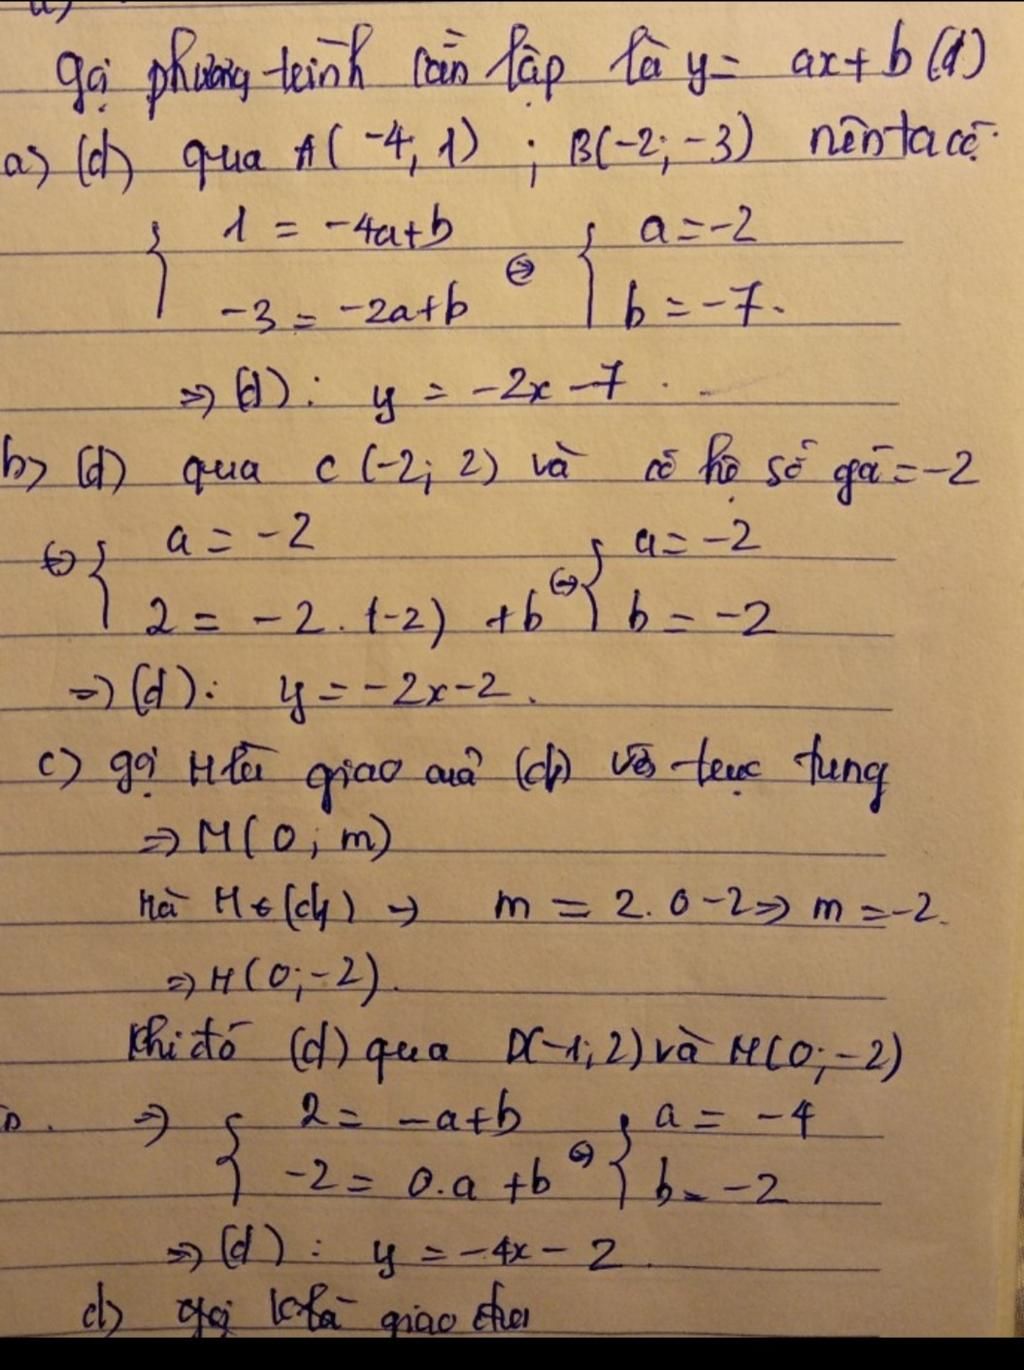 gọi phương trình cần lập là y = ax + b (d)
a> (d) qua A(-4, 1) ; B(-2; -3) nên ta có
{ 1 = -4a+b ⇔ { a = -2
-3 = -2a+b b = -7.
=> (d): y = -2x - 7.
b> (d) qua C(-2; 2) và có hệ số góc = -2
⇔ { a = -2 ⇔ { a = -2
2 = -2.(-2) + b b = -2
=> (d): y = -2x - 2.
c) gọi M là giao của (d1) với trục tung
=> M(0; m)
Mà M ∈ (d1) → m = 2.0 - 2 => m = -2.
=> M(0; -2).
Khi đó (d) qua D(-1; 2) và M(0; -2)
=> { 2 = -a+b ⇔ { a = -4
-2 = 0.a + b b = -2
=> (d): y = -4x - 2.
d) gọi K là giao của